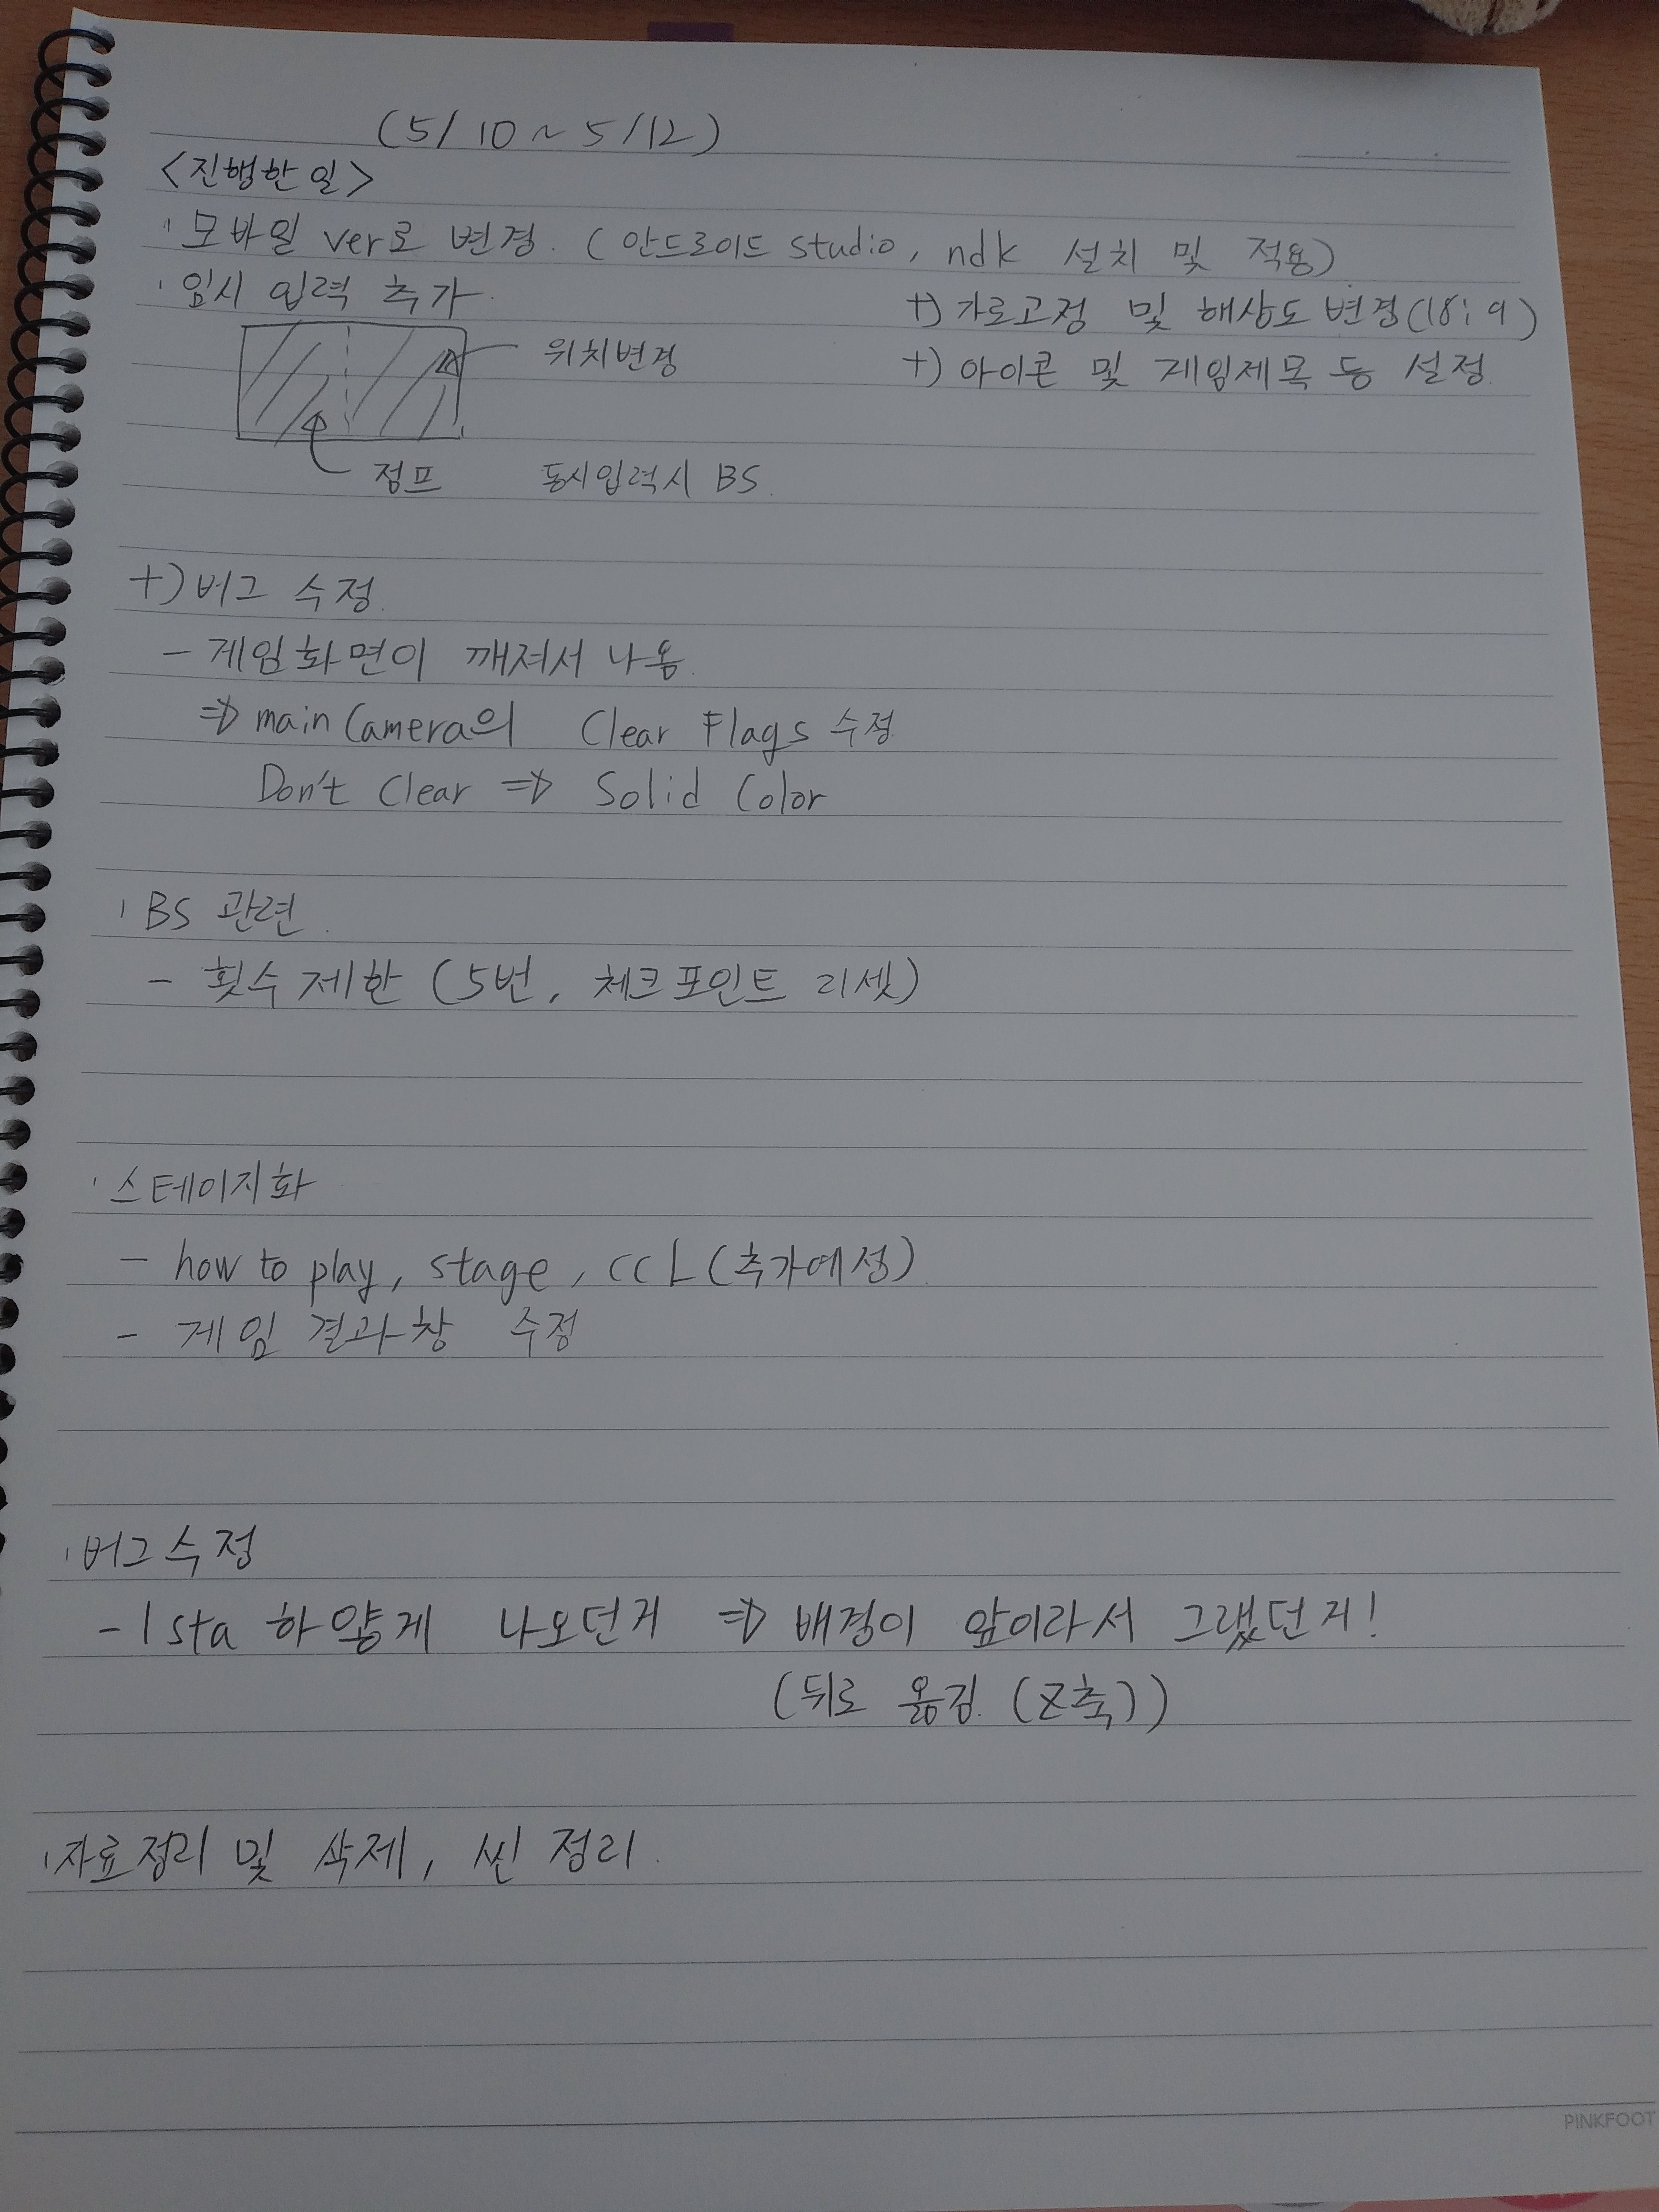 (5/10~5/12)
<진행한 일>
· 모바일 ver로 변경. (안드로이드 studio, ndk 설치 및 적용)
· 임시 입력 추가.
+) 가로고정 및 해상도 변경(18:9)
위치변경
+) 아이콘 및 게임제목 등 설정.
점프
동시입력시 BS.
+) 버그 수정.
- 게임화면이 깨져서 나옴.
⇒ main Camera의 Clear Flags 수정.
Don't Clear ⇒ Solid Color
· BS 관련.
- 횟수제한 (5번, 체크포인트 리셋)
· 스테이지화
- how to play, stage, CCL(추가예정).
- 게임 결과창 수정
· 버그수정
- 1sta 하얗게 나오던거 ⇒ 배경이 앞이라서 그랬던거!
(뒤로 옮김. (Z축))
· 자료정리 및 삭제, 씬 정리.
PINKFOOT